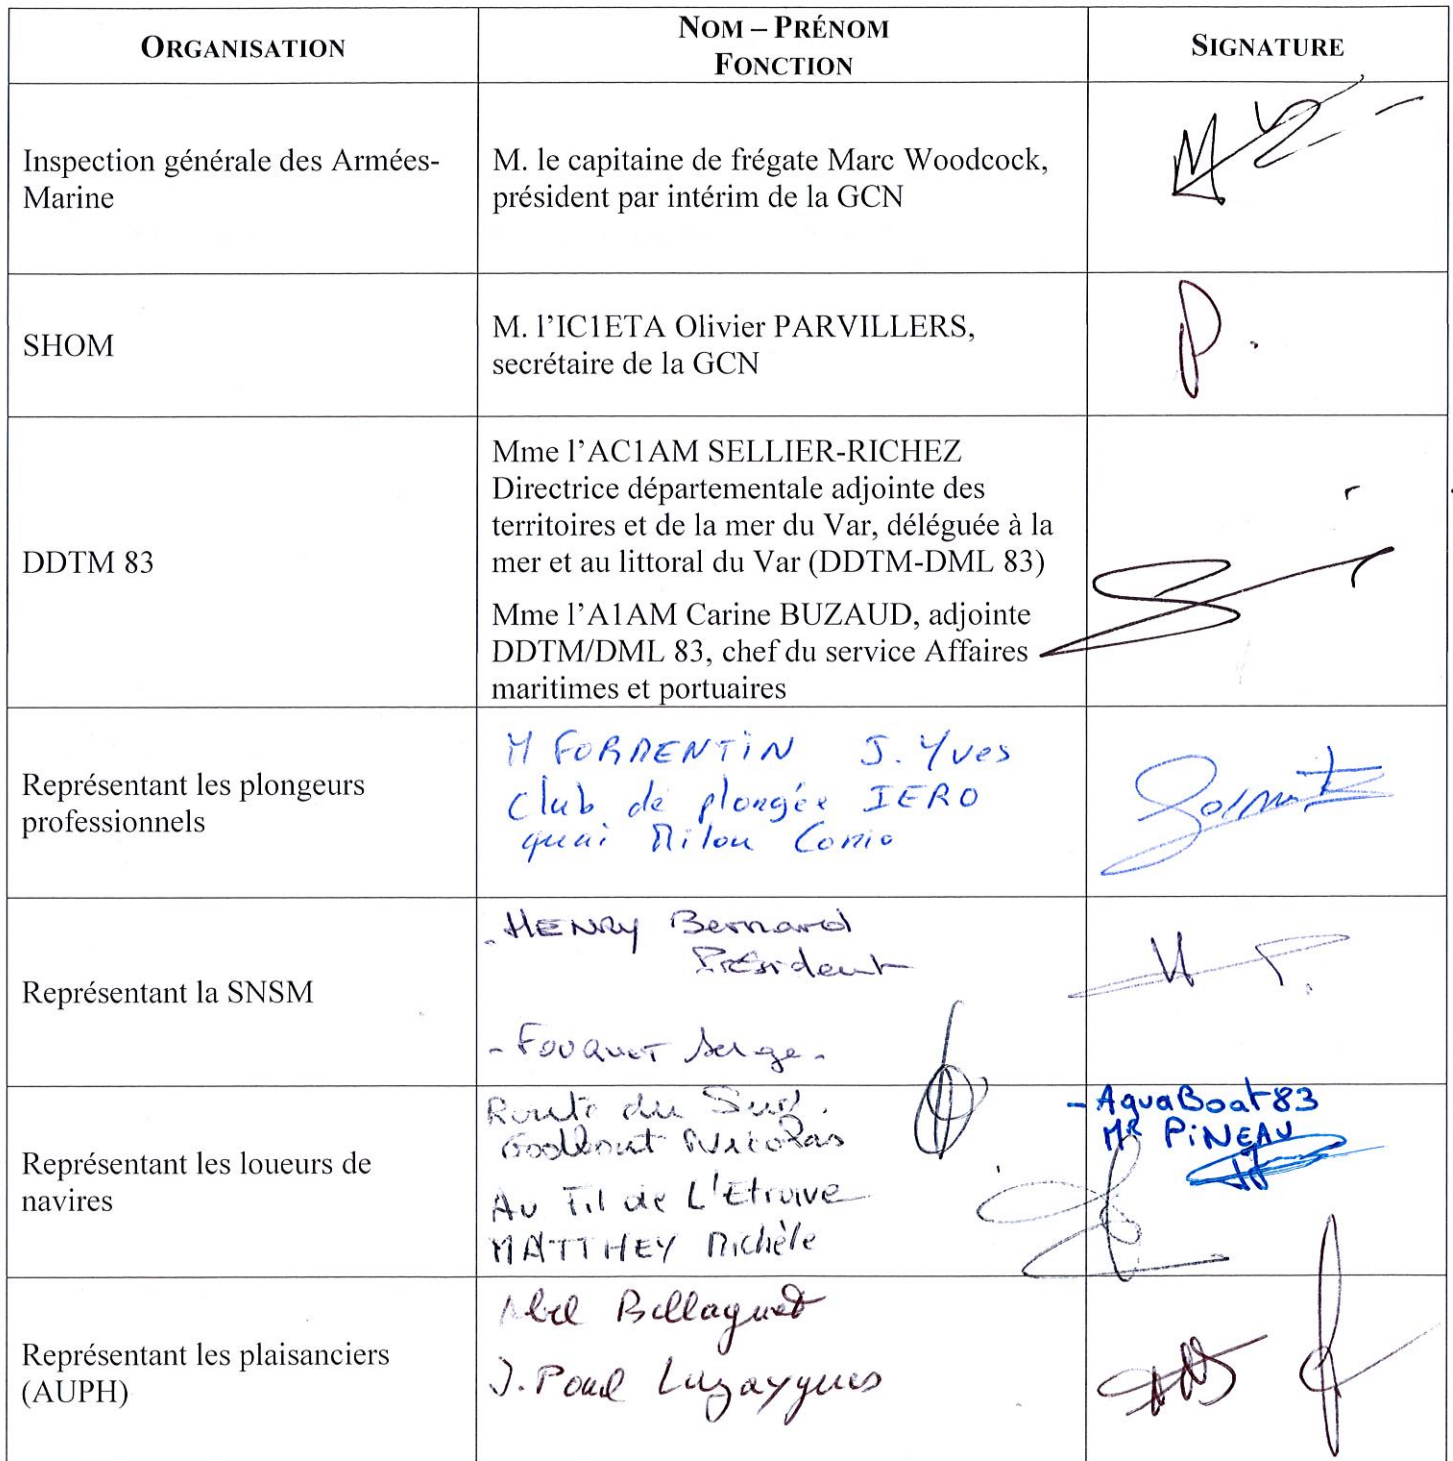 ORGANISATION
NOM – PRÉNOM
FONCTION
SIGNATURE
Inspection générale des Armées-
Marine
M. le capitaine de frégate Marc Woodcock,
président par intérim de la GCN
SHOM
M. l'IC1ETA Olivier PARVILLERS,
secrétaire de la GCN
DDTM 83
Mme l'AC1AM SELLIER-RICHEZ
Directrice départementale adjointe des
territoires et de la mer du Var, déléguée à la
mer et au littoral du Var (DDTM-DML 83)
Mme l'A1AM Carine BUZAUD, adjointe
DDTM/DML 83, chef du service Affaires
maritimes et portuaires
Représentant les plongeurs
professionnels
M FORMENTiN J. Yves
Club de plongée IERO
quai Milou
Représentant la SNSM
- HENRY Bernard
Président
- FOUQUET Serge -
Représentant les loueurs de
navires
Route du Sud.
Nicolas
Au Fil de L'Etrave
MATTHEY Michèle
- AquaBoat 83
MR PiNEAU
Représentant les plaisanciers
(AUPH)
Bellaguet
J. Paul